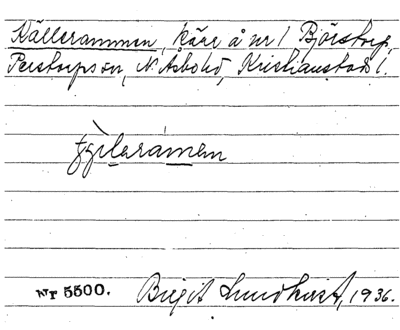 Källerammen, kärr å nr 1 Björstorp,
Perstorps sn, N. Åsbo hd, Kristianstads l.
Nr 5500. Birgit Lundkvist, 1936.